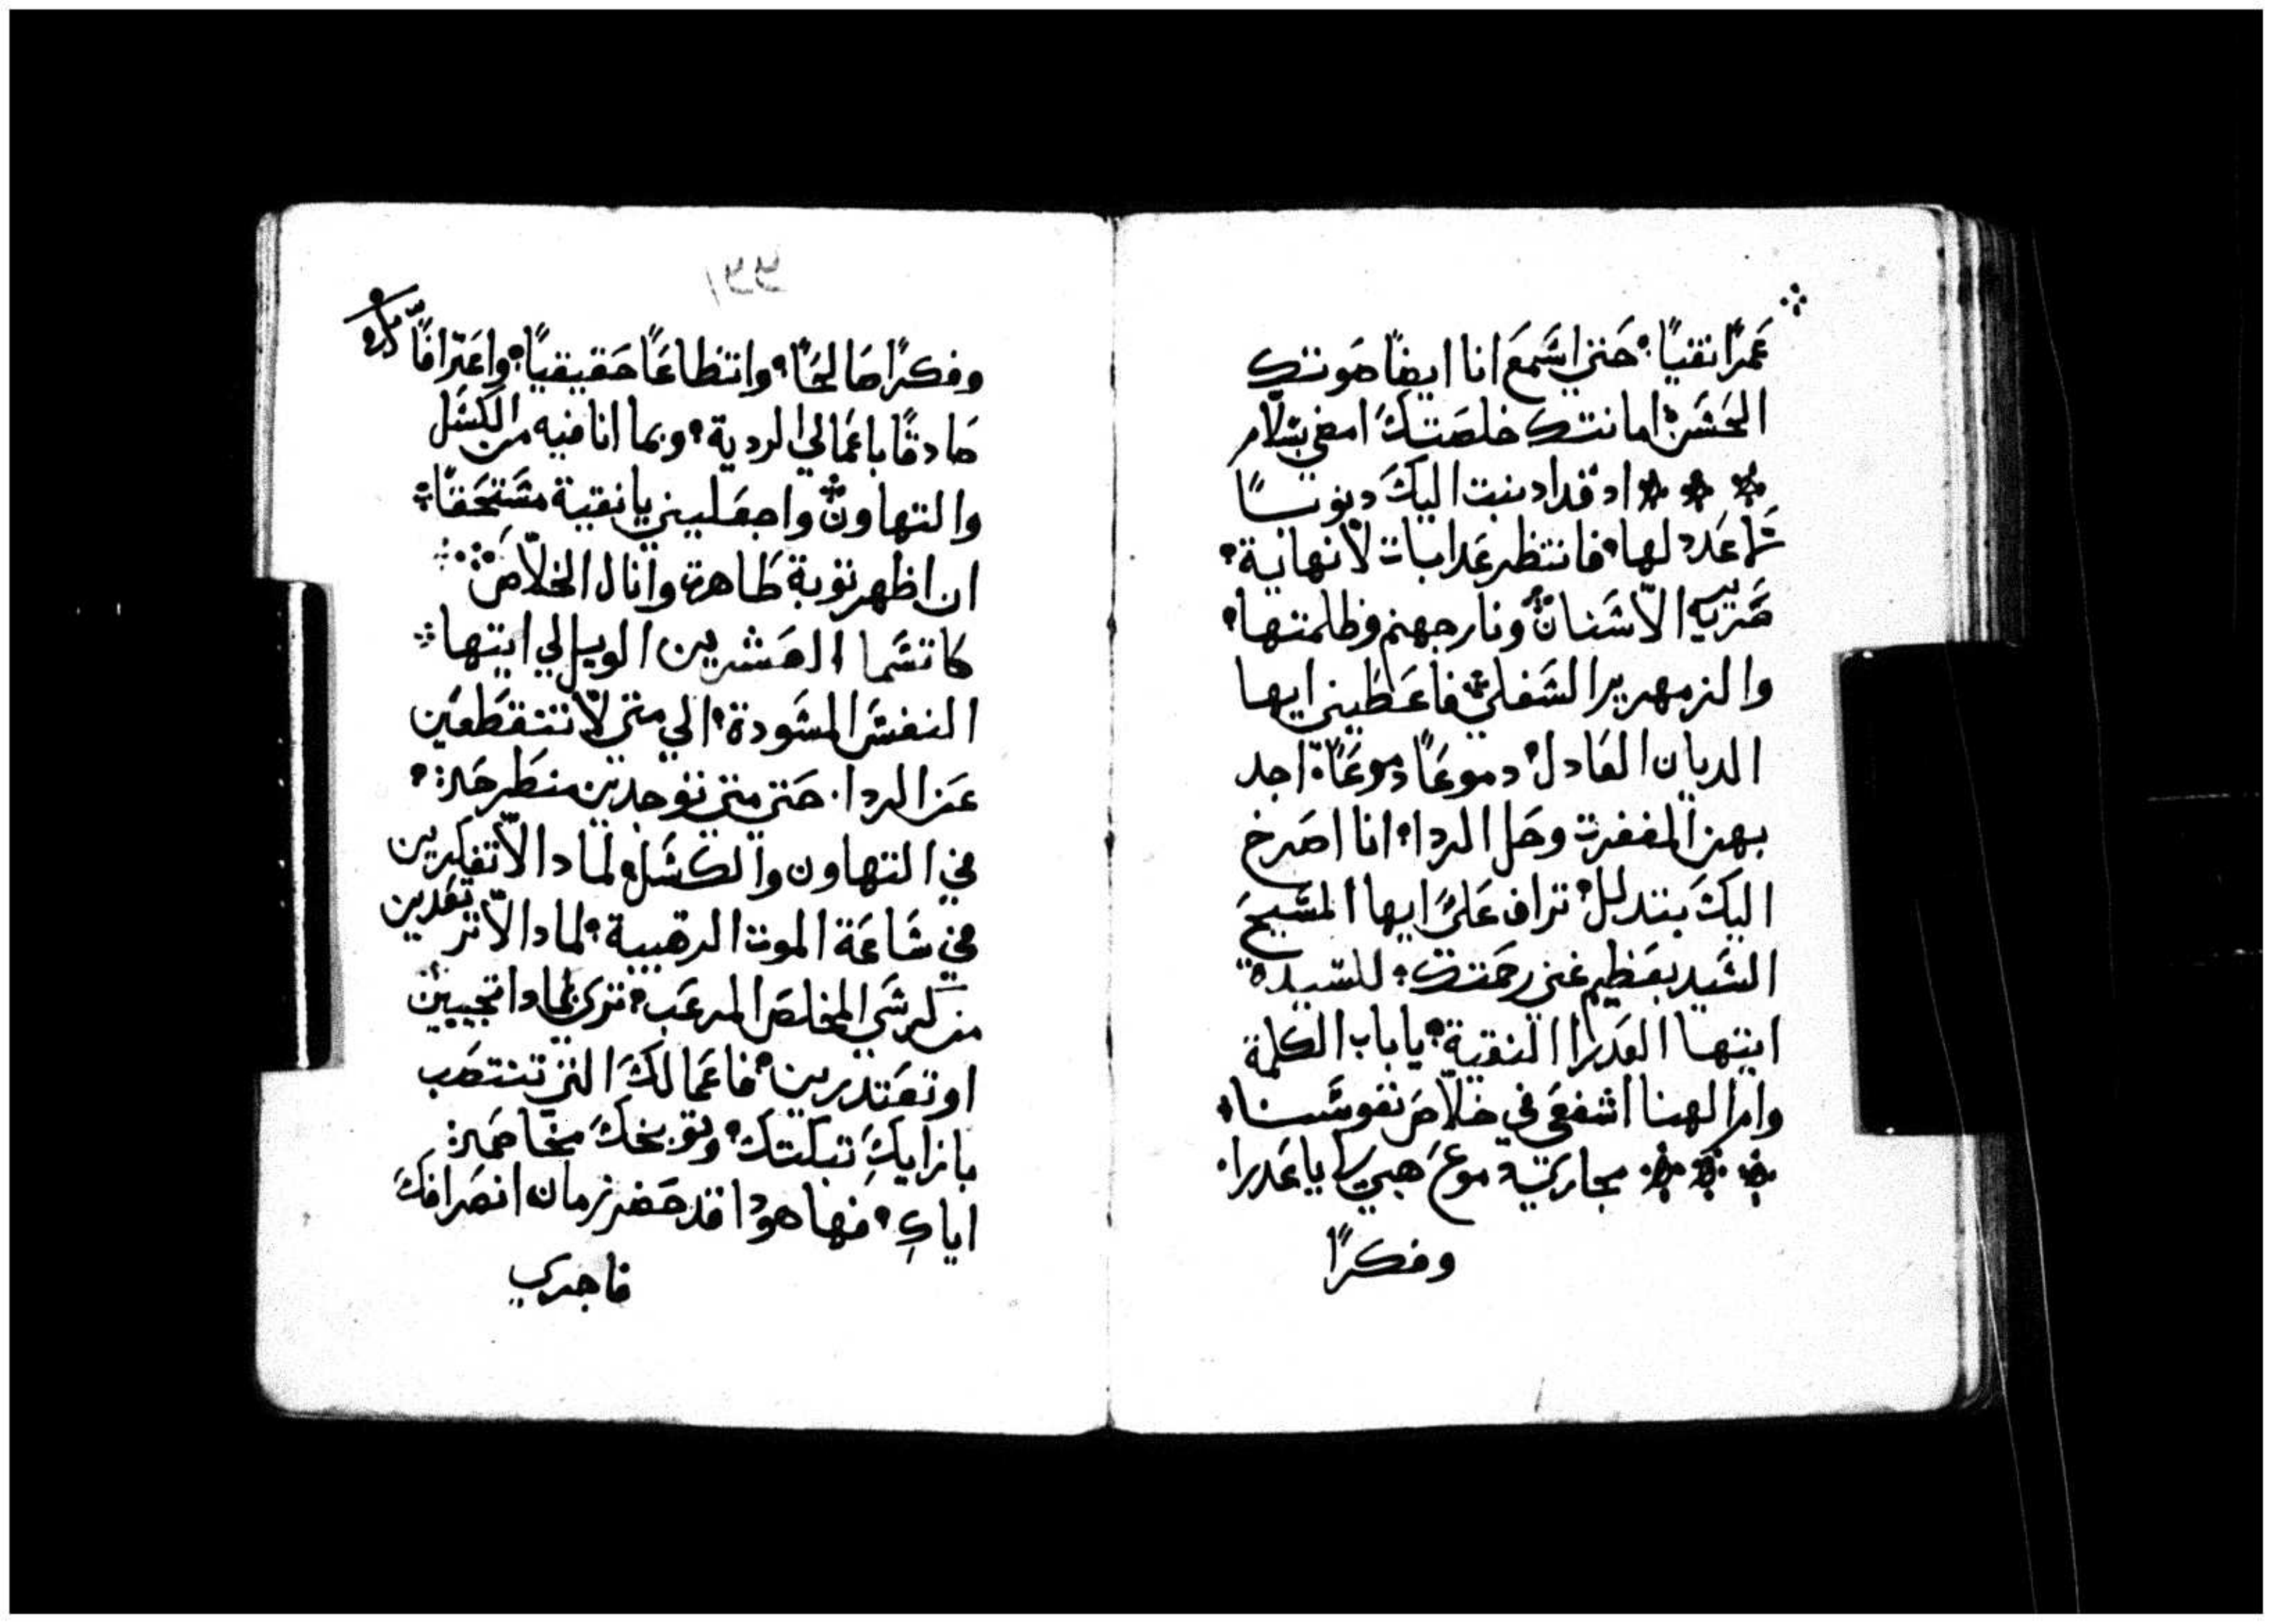 عَمرًا نقتيًا؛ حَتي اسَّمعَ انا ايضًا صَوتتك
الحَسَّن؛ امانتتك خلصَتكَ امضي بسَّلام
اد قد ادنبت اليكَ دنوبـــًا
لا عَدد لها؛ فانتظر عَدابات لاّنهانية؛
صَرير الاّسَّنان ونار جهنم وظلمتها؛
والزمهرير السَّفلي فاعَطيني ايها
الديان العَادل؛ دموعًا دموعًا؛ اجد
بهن المغفرت وحَل الردا؛ انا اصَرخ
اليكَ بتدلل؛ تراف عَليَّ ايها المسَّيحَ
السَّيد بعَظيم غني رحَمتك؛ للسَّيده
ايتها العَدرا النقية؛ يا باب الكلمة
وام الهنا اشفعَي في خلاّصَ نفوسَّنا
مجاري دموعَ هبي لي يا عَدرا.
وفكرًا
وفكرًا صَالحًا؛ وانتظاعًا حَقيقيًا؛ واعَترافًا
صَادقًا باعَمالي الردية؛ وبما انا فيه من الكسَّل
والتهاون واجعَليني يا نقتية مسَّتحَقًا
ان اظهر توبة طَاهرت وانال الخلاّصَ
كاتسَّما العَشرين الويل لي ايتها
النفسَّ المسَّودة؛ الي متي لاّ تنقطَعَين
عَن الردا. حَتي متي توجدين منطَرحَة؛
في التهاون والكسَّل؛ ولمادا لاّ تفكرين
في سَّاعَة الموت الرهَيبة؛ لمادا لاّ ترتعَدين
من كرسَّي المخلصَ المرعَب؛ تري بمادا تجيبين
او تعَتدرين؛ فاعَمالكَ التي تنتصَب
بازايكِ تبكتكَ؛ وتوبخكَ مخاصَمة
اياكِ؛ فها هودا قد حَضر زمان انصَرافكَ
فاجدي